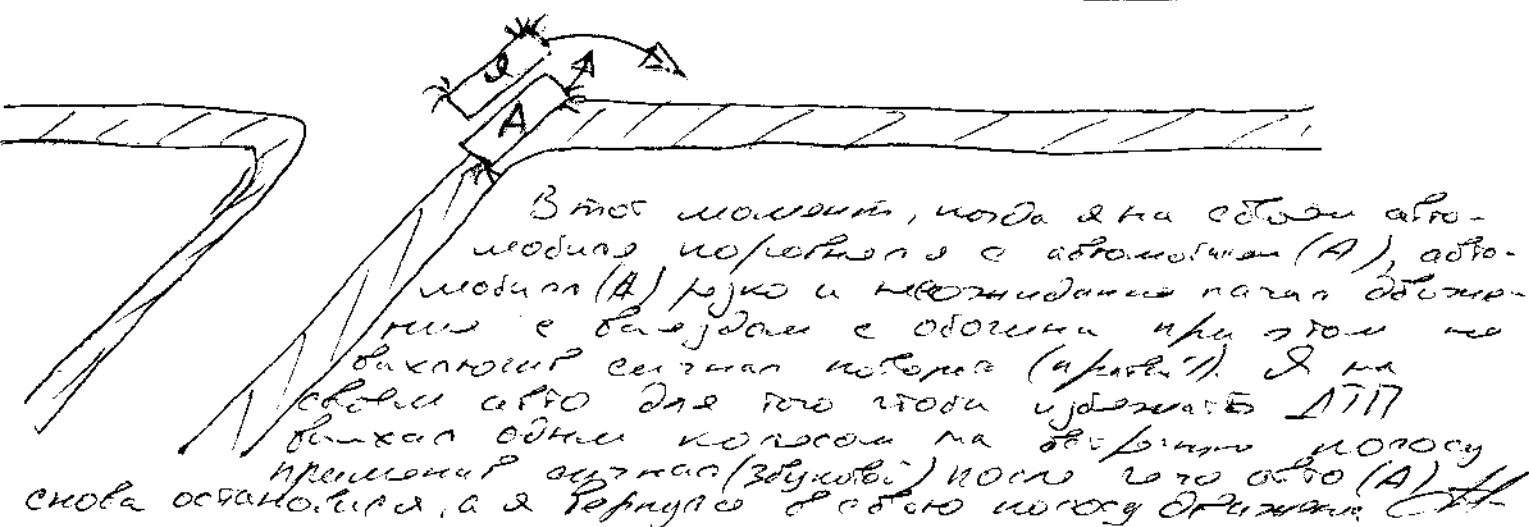 Я
А
В тот момент, когда я на своём авто-
мобиле поровнялся с автомобилем (А), авто-
мобиль (А) резко и неожиданно начал движе-
ние с выездом с обочины при этом не
выключив сигнал поворота (правый). Я на
своём авто для того чтобы избежать ДТП
выехал одним колесом на встречную полосу
применив сигнал (звуковой) после чего авто (А)
снова остановился, а я вернулся в свою полосу движения